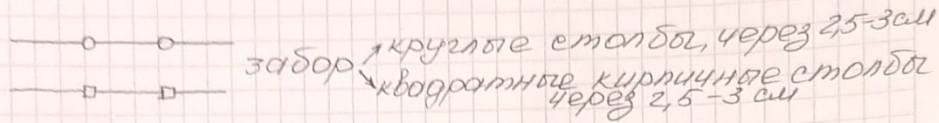 забор круглые столбы, через 2,5-3 см
квадратные кирпичные столбы
через 2,5-3 см